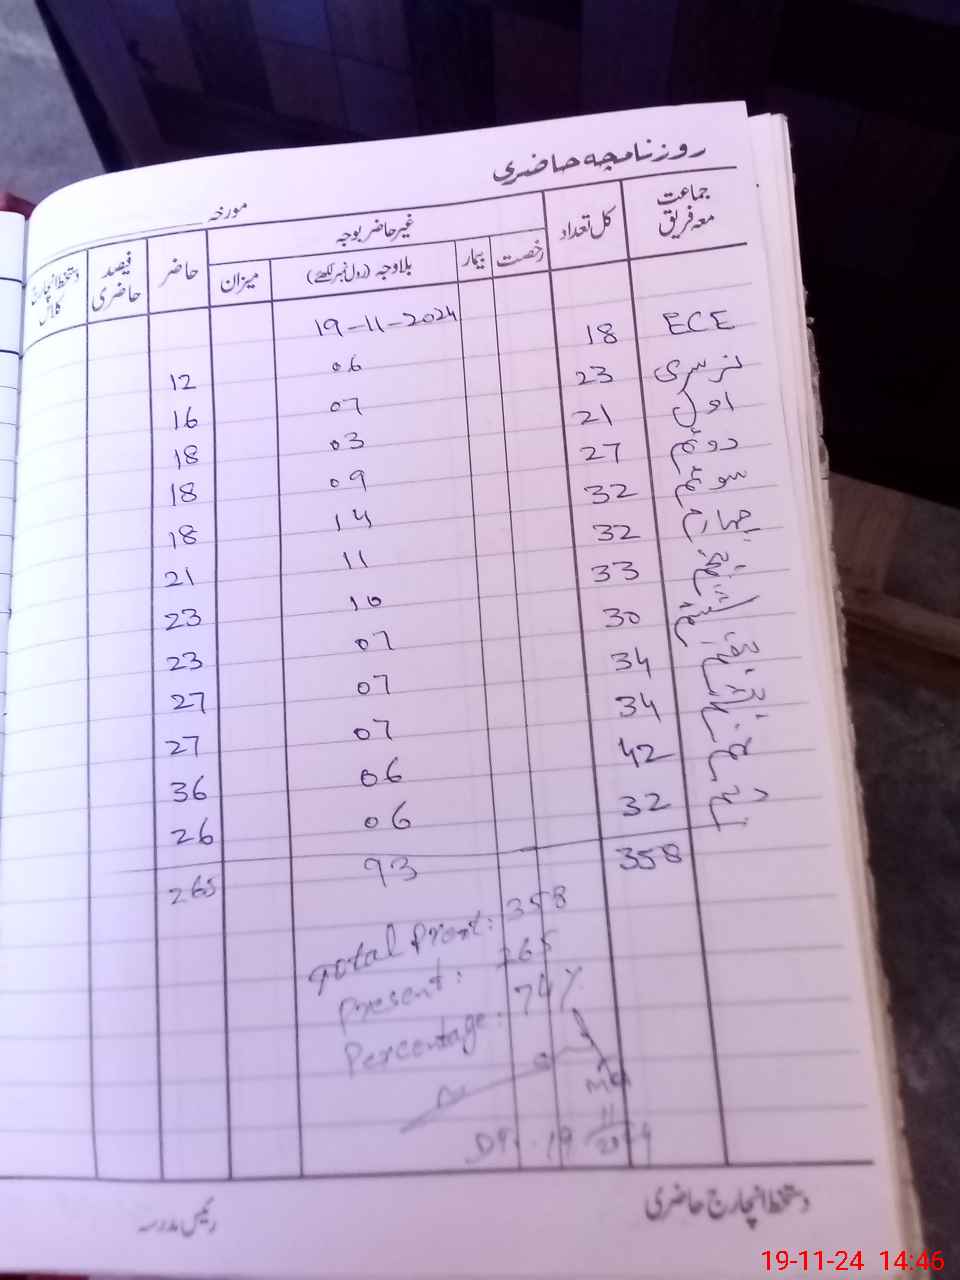 روزنامچہ حاضری
مورخہ
جماعت معہ فریق کل تعداد غیر حاضر بوجہ حاضر فیصد حاضری دستخط انچارج کلاس
رخصت بیمار بلاوجہ (رول نمبر لکھئے) میزان
19-11-2024
ECE 18 06 12
نرسری 23 07 16
اول 21 03 18
دوئم 27 09 18
سوئم 32 14 18
چہارم 32 11 21
33 10 23
30 07 23
34 07 27
34 07 27
42 06 36
دہم 32 06 26
358 93 265
Total : 358
Present : 265
Percentage : 74%
19
11
2024
دستخط انچارج حاضری
رئیس مدرسہ
19-11-24 14:46